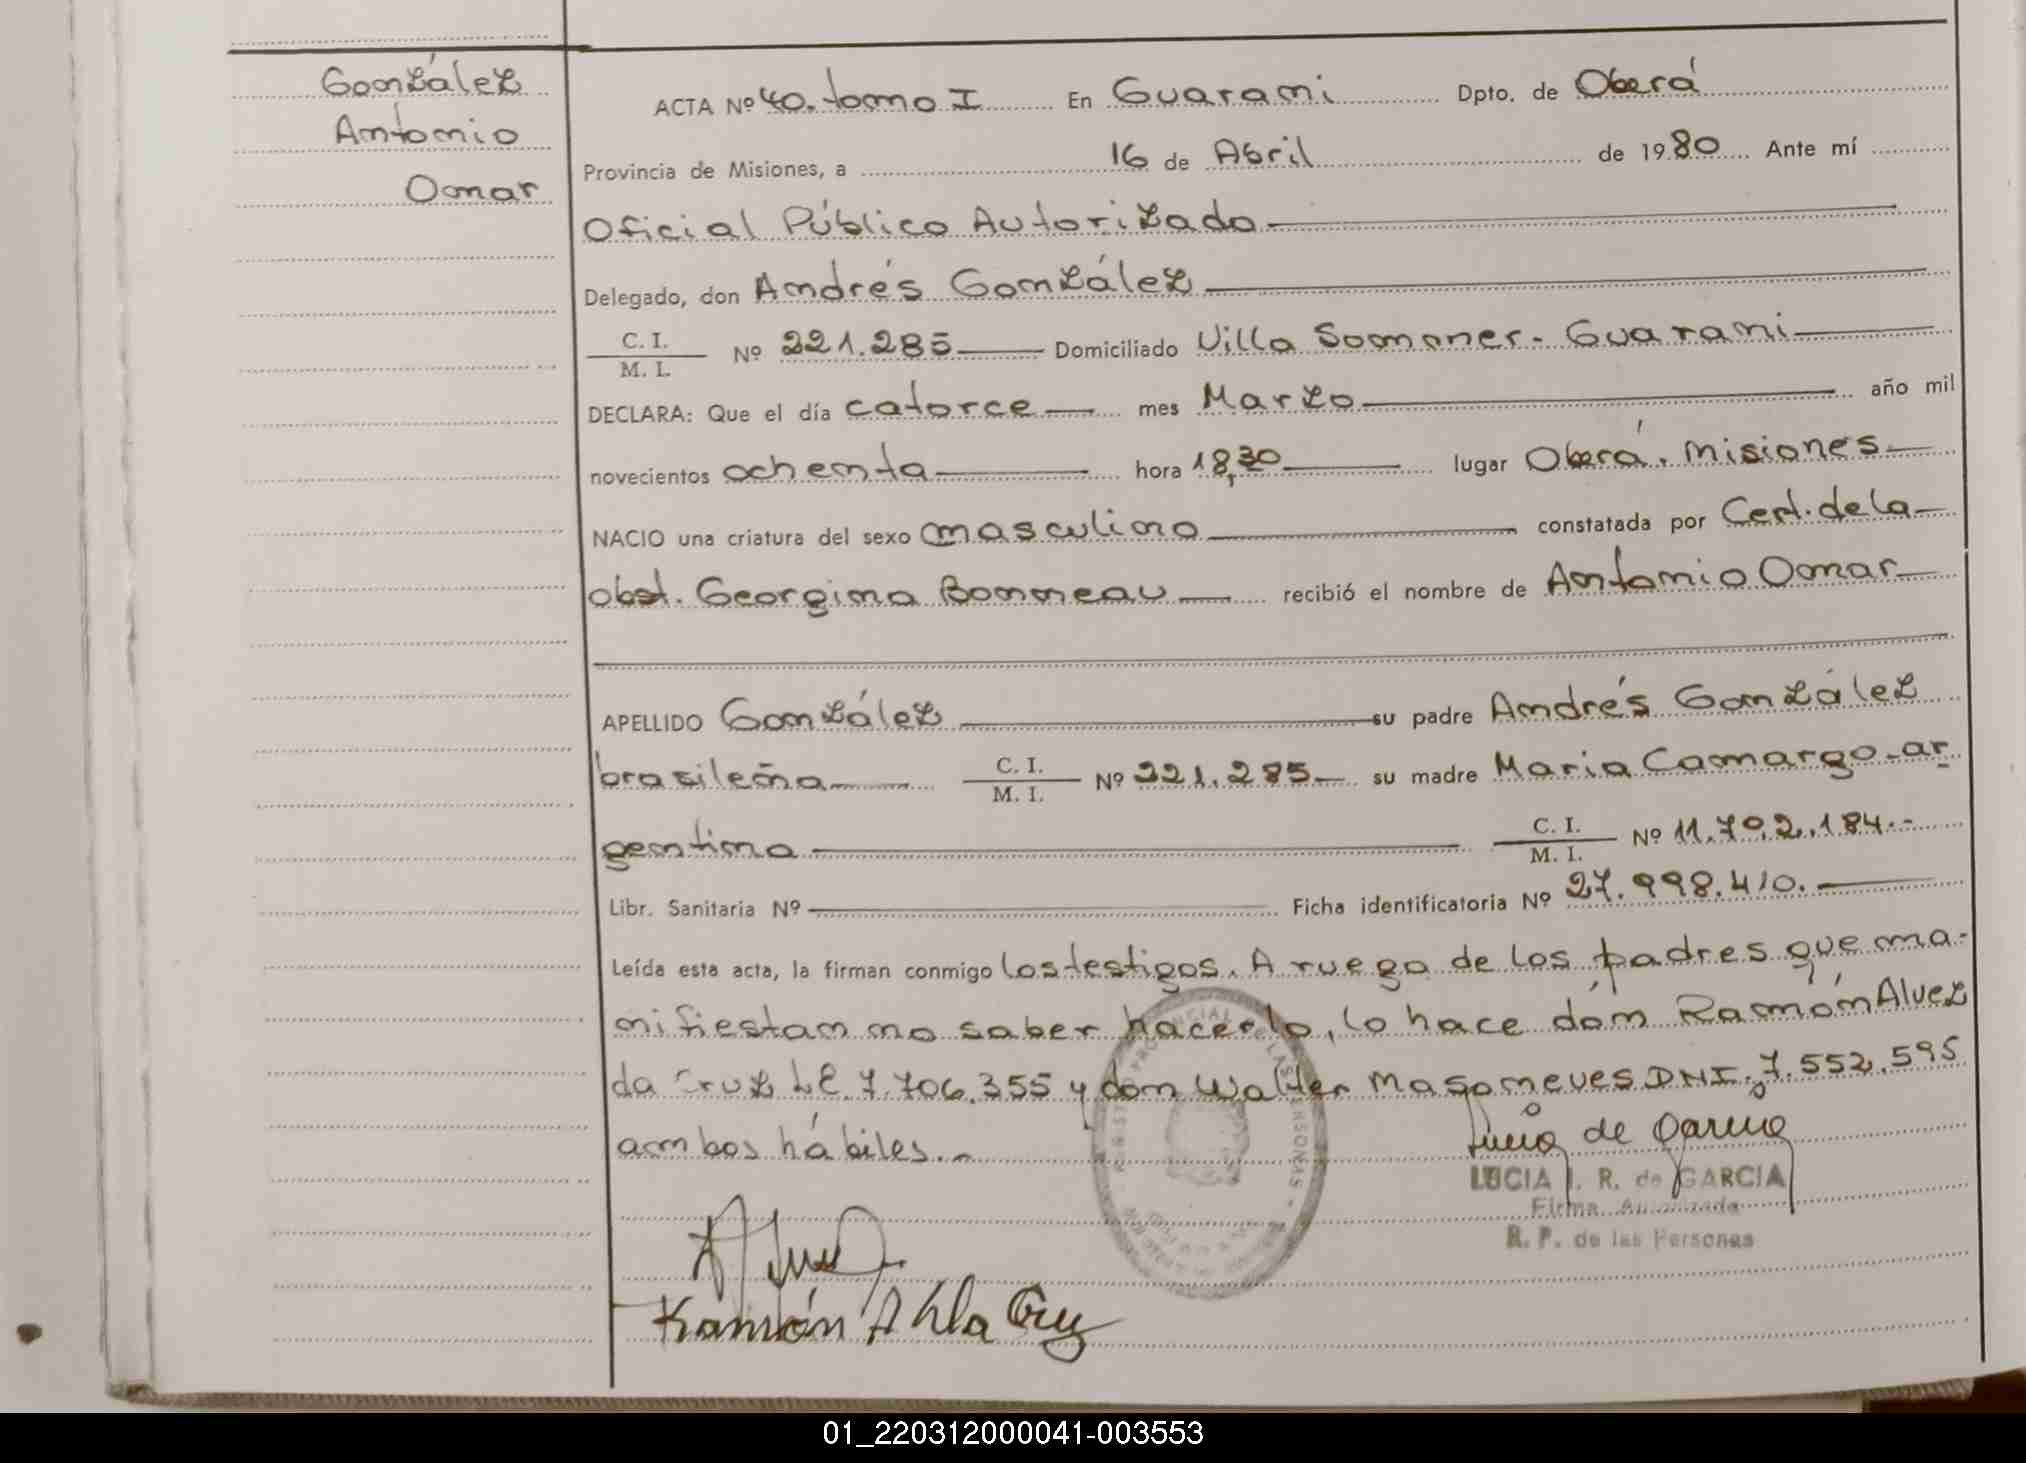 González
Antonio
Omar
ACTA Nº 40. tomo I En Guarani Dpto. de Oberá
Provincia de Misiones, a 16 de Abril de 1980 Ante mí
Oficial Público Autorizado
Delegado, don Andrés González
C. I.
M. I. Nº 221.285 Domiciliado Villa Sommer - Guarani
DECLARA: Que el día catorce mes Marzo año mil
novecientos ochenta hora 18,30 lugar Oberá. Misiones
NACIO una criatura del sexo masculino constatada por Cert. de la
obst. Georgina Bonneau recibió el nombre de Antonio Omar
APELLIDO González su padre Andrés González
brasileña C. I.
M. I. Nº 221.285 su madre Maria Camargo - ar
gentina C. I.
M. I. Nº 11.702.184.-
Libr. Sanitaria Nº Ficha identificatoria Nº 27.998.410.
Leída esta acta, la firman conmigo los testigos. A ruego de los padres que ma-
nifiestan no saber hacerlo, lo hace dón Ramón Alvez
da Cruz LE. 7.706.355 y don Walter Magoneves DNI. 7.552.595
ambos hábiles.-
LUCIA I. R. de GARCIA
Firma Autorizada
R. P. de las Personas
Ramón A da Cruz
01_220312000041-003553